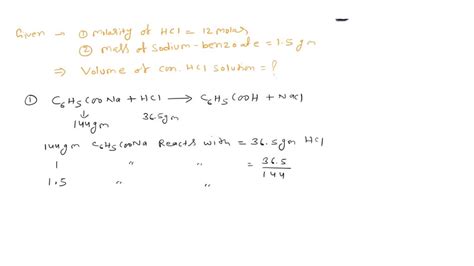 Given → ① Molarity of HCl = 12 molar
② Mass of sodium-benzoate = 1.5 gm
⇒ Volume of con. HCl solution = ?
① C₆H₅COONa + HCl → C₆H₅COOH + NaCl
↓
144gm 36.5gm
144gm C₆H₅COONa Reacts with = 36.5gm HCl
1 〃 〃 = 36.5/144
1.5 〃 〃